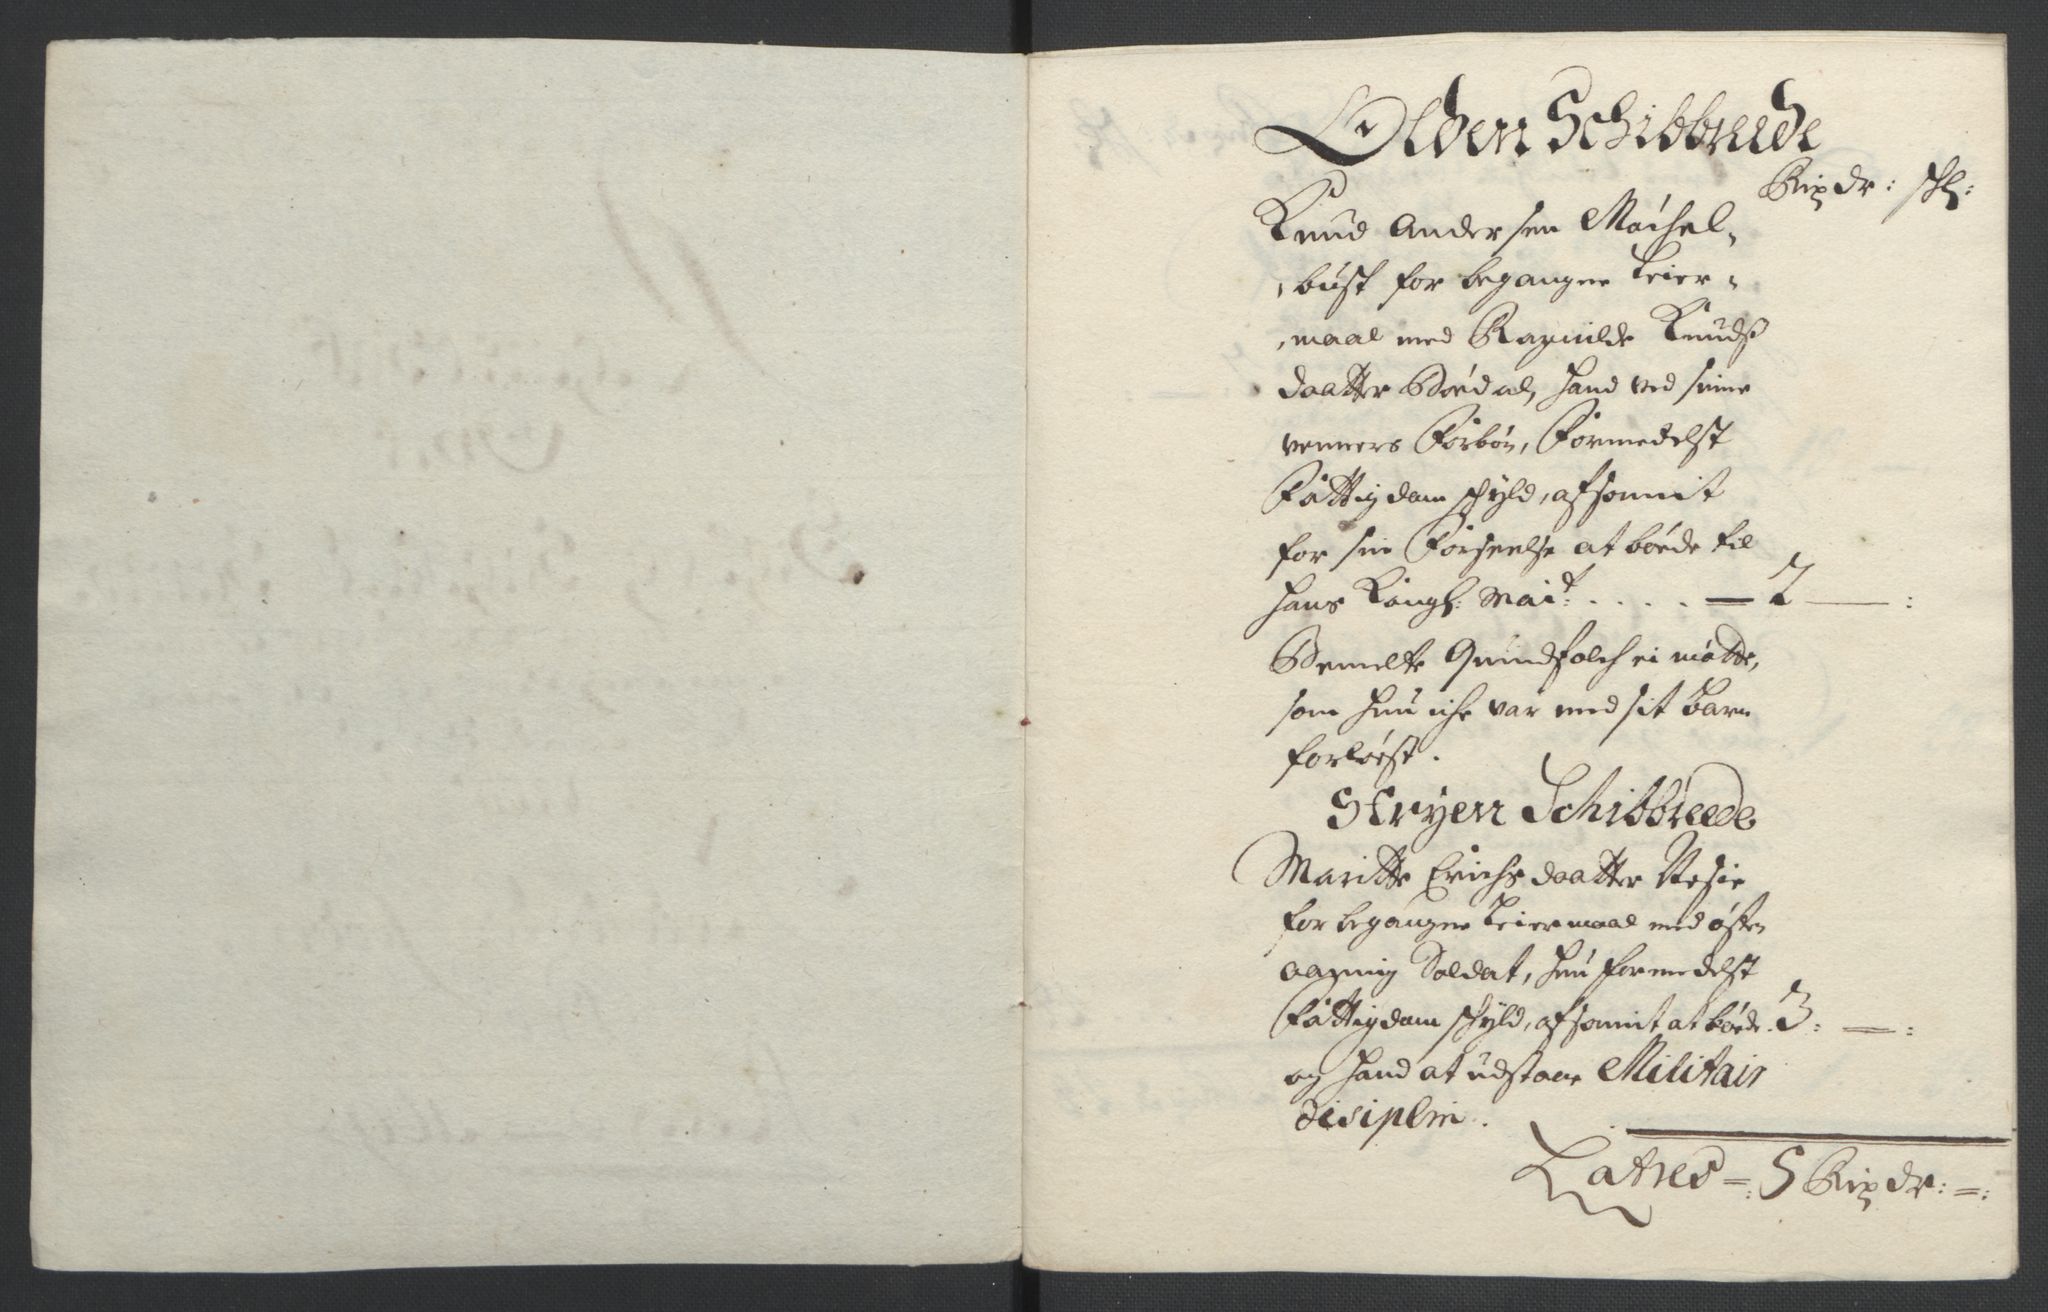 Olden Schibbrede
Rixdr: sk:
Knud Andersen Møchel,,
,,bust for begangne Leier,,
,,maal med Ragnilde Knuds
daatter Bødal, hand ved sinne
venners Forbøn, Formedelst
Fattigdom schyld, afsonnit
for sin Forseelse at bøede til
Hans Kongl: Mait: . . . . — 2 — :
Bemelte Quindfolch ei møtte,
som hun iche var med sit barn
forløest.
Stryen Schibbreede
Maritte Erichsdaatter
for begangne Leiermaal med østen
Soldat, hun formedelst
Fattigdom schyld, afsonnit at bøede . 3: — :
og hand at udstaae Militair
disiplin.
Latres =: 5 Rixdr: =: